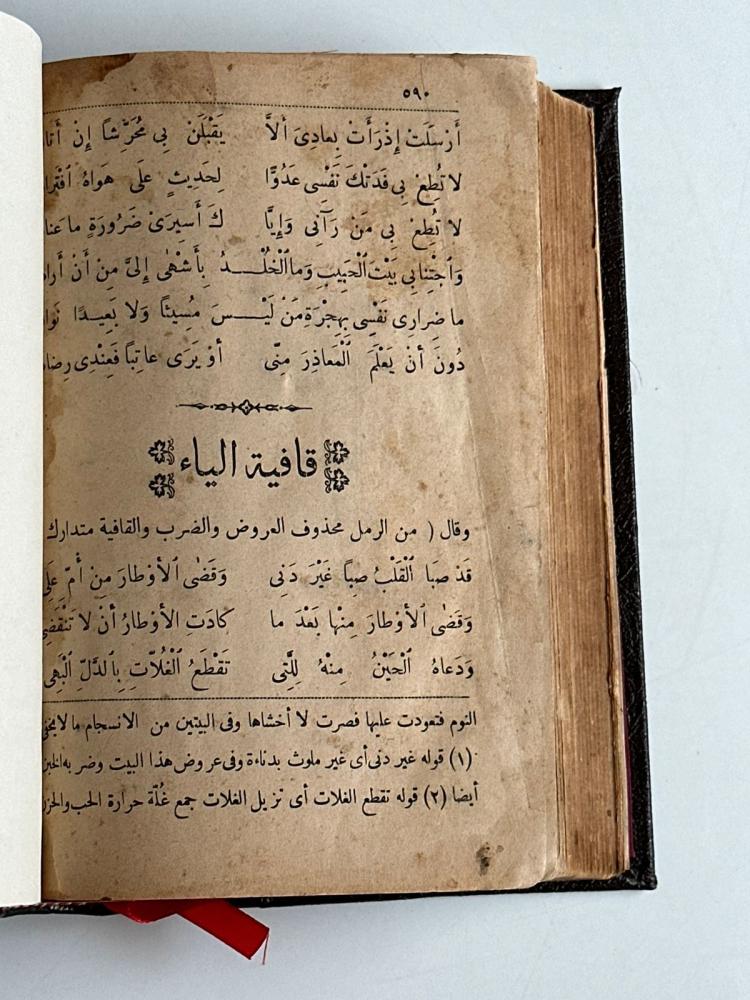 ٥٩٠
أَرْسَلَتْ إِذْ رَأَتْ بِعادِى أَلاَّ يَقْبَلَنْ بِى مُحَرِّشاً إِنْ
لا تُطِعْ بِى فَدَتْكَ نَفْسِى عَدُوًّا لِحَدِيثٍ عَلَى هَواهُ
لا تُطِعْ بِى مَنْ رَآنِى وَإِيَّا كَ أَسِيرَىْ ضَرُورَةٍ ما
وَٱجْتِنابِى بَيْتَ ٱلْحَبِيبِ وَما ٱلْخُلْــدُ بِأَشْهَى إِلَىَّ مِنْ أَنْ
ما ضِرارِى نَفْسِى بِهِجْرَةِ مَنْ لَيْــسَ مُسِيئاً وَلا بَعِيــدًا
دُونَ أَنْ يَعْلَمَ ٱلْمَعاذِرَ مِنِّى أَوْ يَرَى عاتِباً فَعِنْدِى
قافية الياء
وقال ( من الرمل محذوف العروض والضرب والقافية متدارك
قَدْ صَبَا ٱلْقَلْبُ صِباً غَيْرَ دَنِى وَقَضَى ٱلأَوْطارَ مِنْ أُمِّ
وَقَضَى ٱلأَوْطارَ مِنْها بَعْدَ ما كادَتِ الأَوْطارُ أَنْ لا
وَدَعاهُ ٱلْحَيْنُ مِنْهُ لِلَّتِى تَقْطَعُ ٱلْغُلاَّتِ بِالدَّلِّ ٱلْبَهِى
النوم فتعودت عليها فصرت لا أخشاها وفى البيتين من الانسجام ما
(١) قوله غير دنى أى غير ملوث بدناءة وفى عروض هذا البيت وضربه
أيضا (٢) قوله تقطع الغلات أى تزيل الغلات جمع غُلّة حرارة الحب